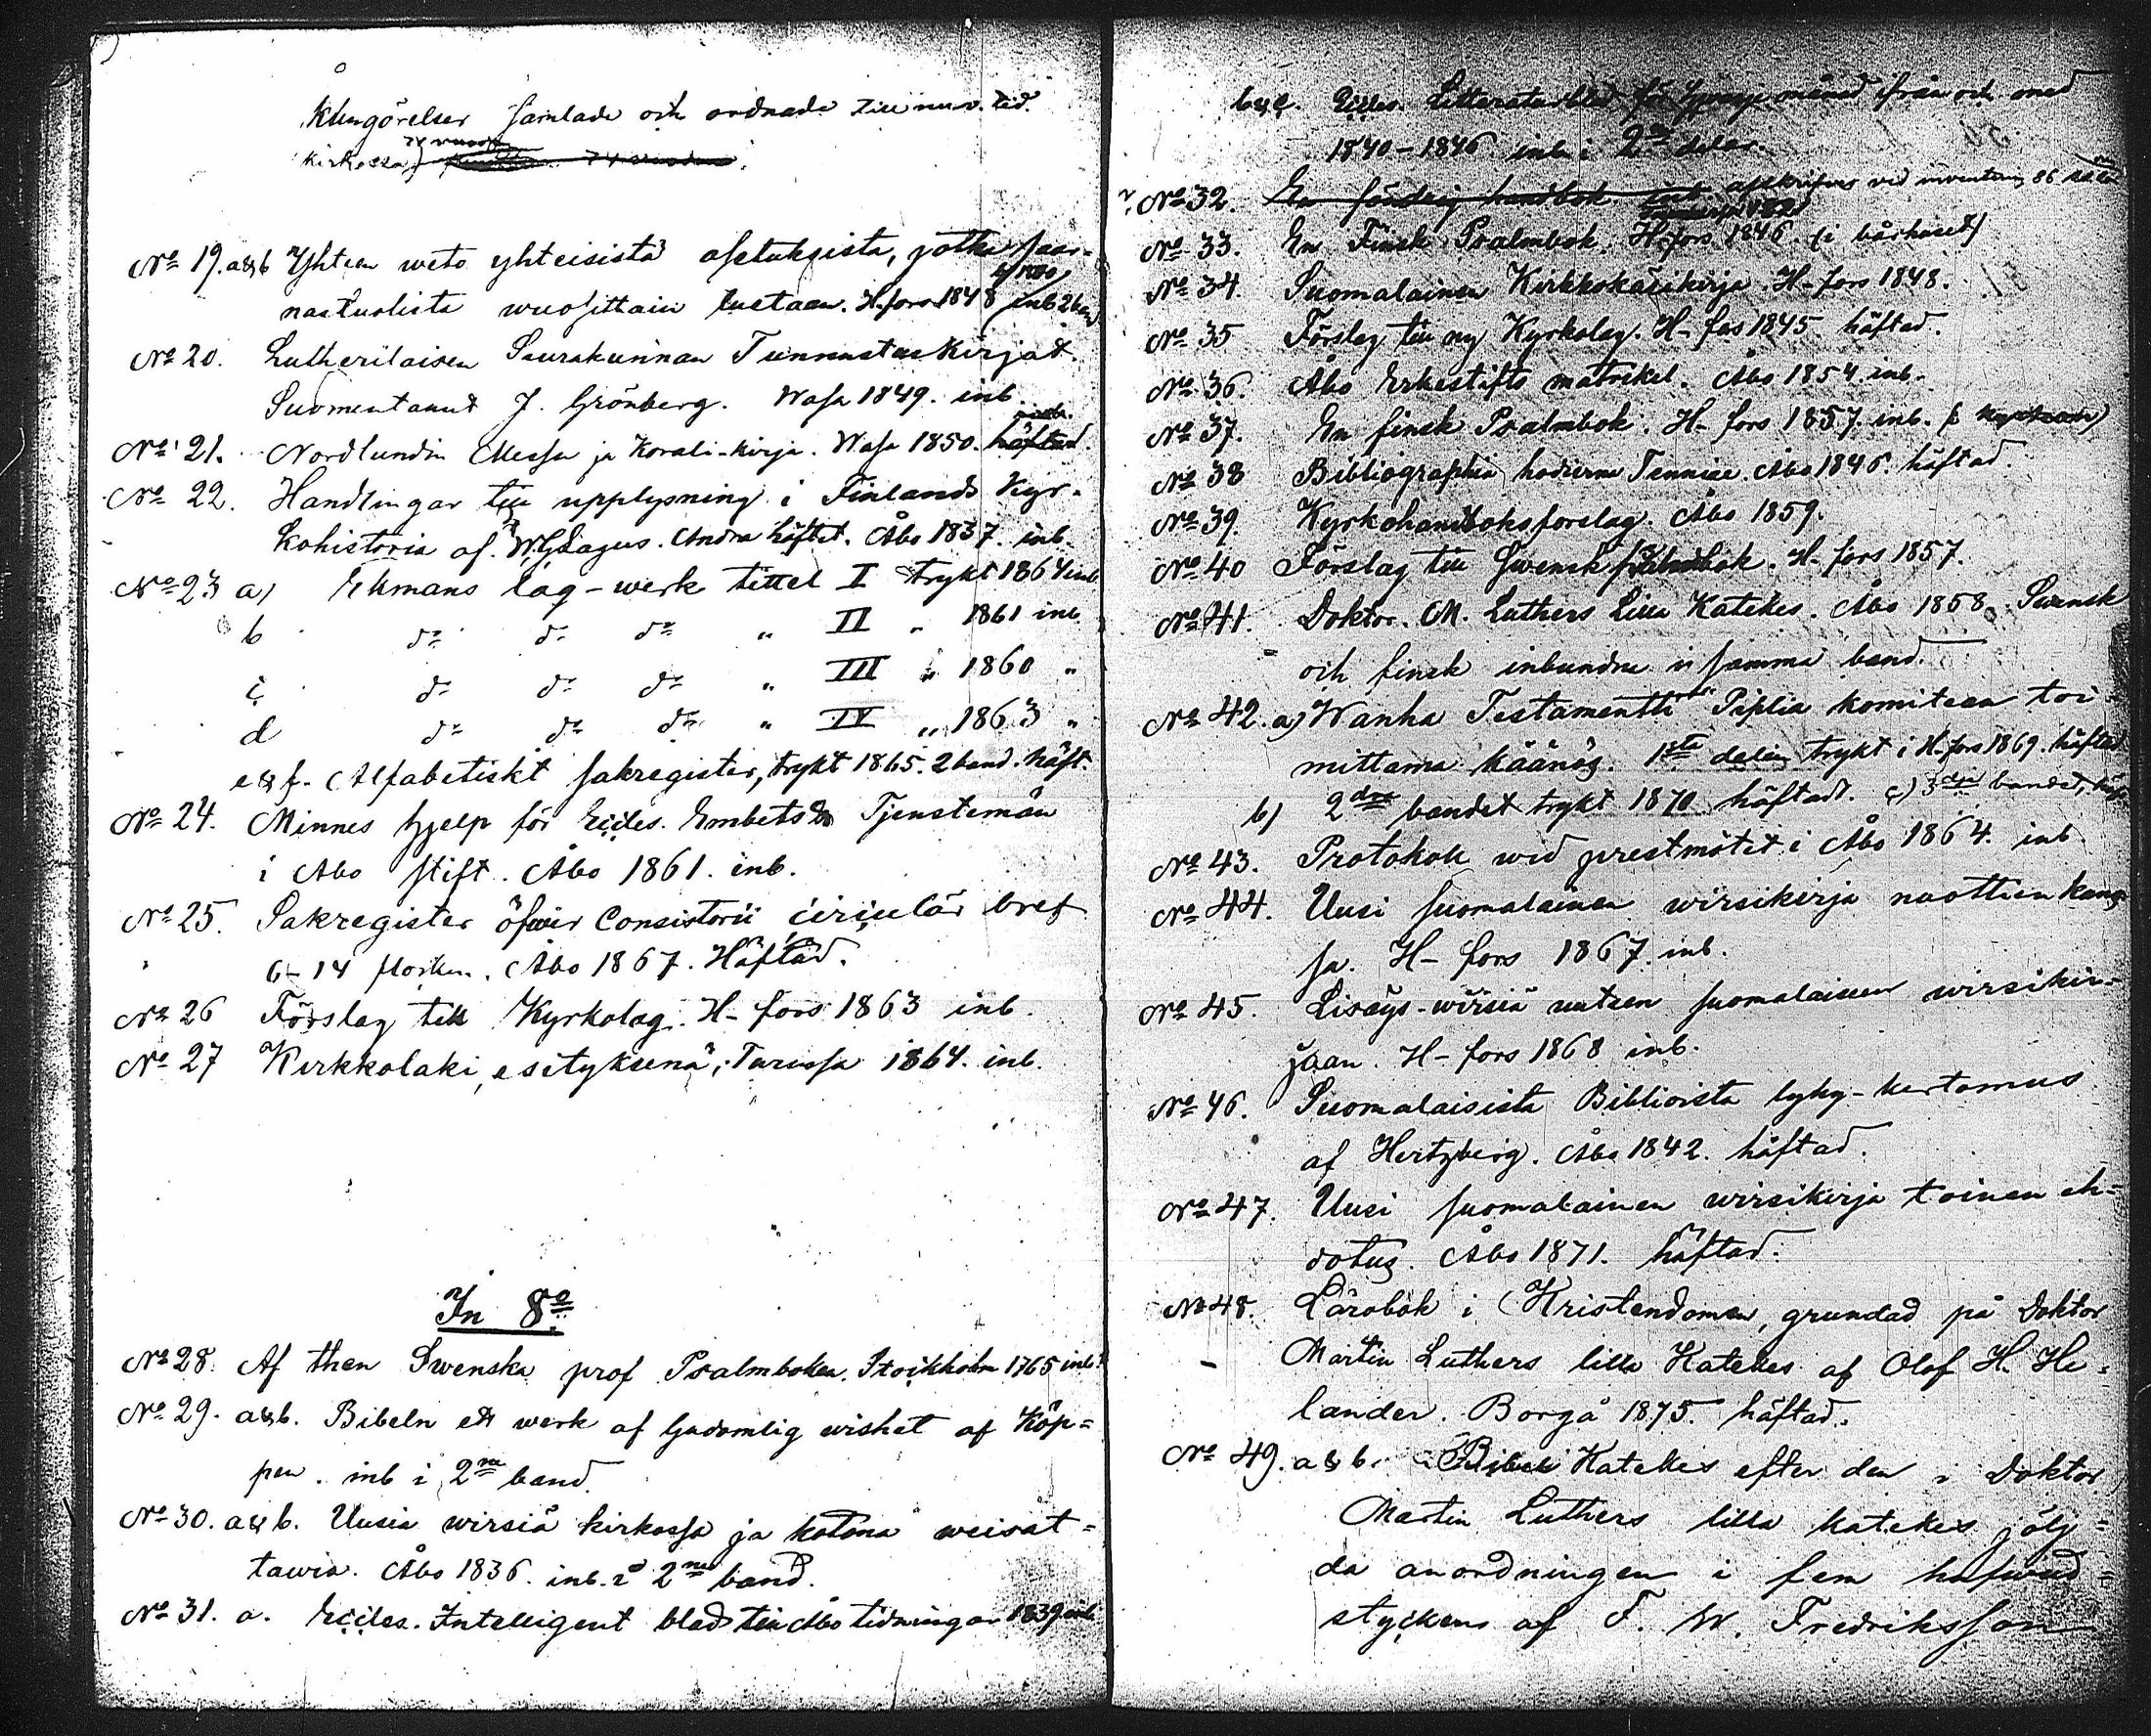 Kungörelser samlade och ordnade till nuv. tid.
Kirkossa
No 19. a&b Yhteen weto yhteisistä asetuksista, jotka saar-
nastuolista wuosittain luetaan. H-fors 1848 inb 2 band
No 20. Lutherilaisen Seurakunnan Tunnustus Kirjat.
Suomentanut J. Grönberg. Wasa 1849. inb.
No 21. Nordlundin Messu ja Korali-kirja. Wasa 1850. häftad.
No 22. Handlingar till upplysning i Finlands Kyr-
kohistoria af W. G. Lagus. Andra häftet. Åbo 1837. inb.
No 23 a) Ekmans lag-werk tittel I trykt 1864 inb
b do do do " II " 1861 inb.
c do do do " III " 1860 "
d do do do " IV " 1863 "
e&f. Alfabetiskt sakregister, trykt 1865. 2 band. häft.
No 24. Minnes hjelp för Eccles. Embets & Tjenstemän
i Åbo stift. Åbo 1861. inb.
No 25. Sakregister öfwer Consistorii circulär bref
6-14 Åbo 1867. Häftad.
No 26 Förslag till Kyrkolag. H-fors 1863 inb.
No 27 Kirkkolaki, esityksenä, Turussa 1864. inb.
In 8o
No 28. Af then Swenska prof Psalmboken. Stockholm 1765 inb.
No 29. a&b. Bibeln ett werk af Gudomlig wishet af Köp=
pen. inb i 2ne band.
No 30. a&b. Uusia wirsiä kirkossa ja kotona weisat=
tawia. Åbo 1836. inb. i 2ne band.
No 31. a. Eccles. Intelligent blad till Åbo tidningar 1839 inb
b&c. Eccles. Litteraturblad för hvarje månad ifrån och med
1840-1846 inb i 2ne delar.
No 32. En handbok afskrifves vid inventering 86
No 33. En Finsk Psalmbok. H-fors 1846. (i bårhuset)
No 34. Suomalainen Kirkkokäsikirja. H-fors 1848.
No 35 Förslag till ny Kyrkolag. H-fors 1845 häftad.
No 36. Åbo Erkestifts matrikel. Åbo 1854. inb.
No 37. En finsk Psalmbok. H-fors 1857. inb.
No 38 Bibliographia hodierna Fenniae. Åbo 1846. häftad.
No 39. Kyrkohandboksförslag. Åbo 1859.
No 40 Förslag till Swensk psalmbok. H-fors 1857.
No 41. Doktor. M. Luthers Lilla Katekes. Åbo 1858. Swensk
och finsk inbundna i samma band.
No 42. a) Wanha Testamentti Piplia komitean toi=
mittama käänös. 1sta delen trykt i H-fors 1869. häftad
b) 2dra bandet trykt 1870 häftadt. c) 3dje bandet, häft
No 43. Protokoll wid prestmötet i Åbo 1864. inb
No 44. Uusi suomalainen wirsikirja nuottien kans-
sa. H-fors 1867. inb.
No 45. Lisäys-wirsiä uuteen suomalaiseen wirsikir-
jaan. H-fors 1868 inb.
No 46. Suomalaisista Biblioista lyhy-kertomus
af Hertzberg. Åbo 1842. häftad.
No 47. Uusi suomalainen wirsikirja toinen eh=
dotus. Åbo 1871. häftad.
No 48. Lärobok i Kristendomen, grundad på Doktor
Martin Luthers lilla Katekes af Olof H. He=
lander. Borgå 1875. häftad.
No 49. a&b. Bibel Katekes efter den i Doktor
Martin Luthers lilla katekes följ=
da anordningen i fem hufwud=
stycken af F. W. Fredriksson